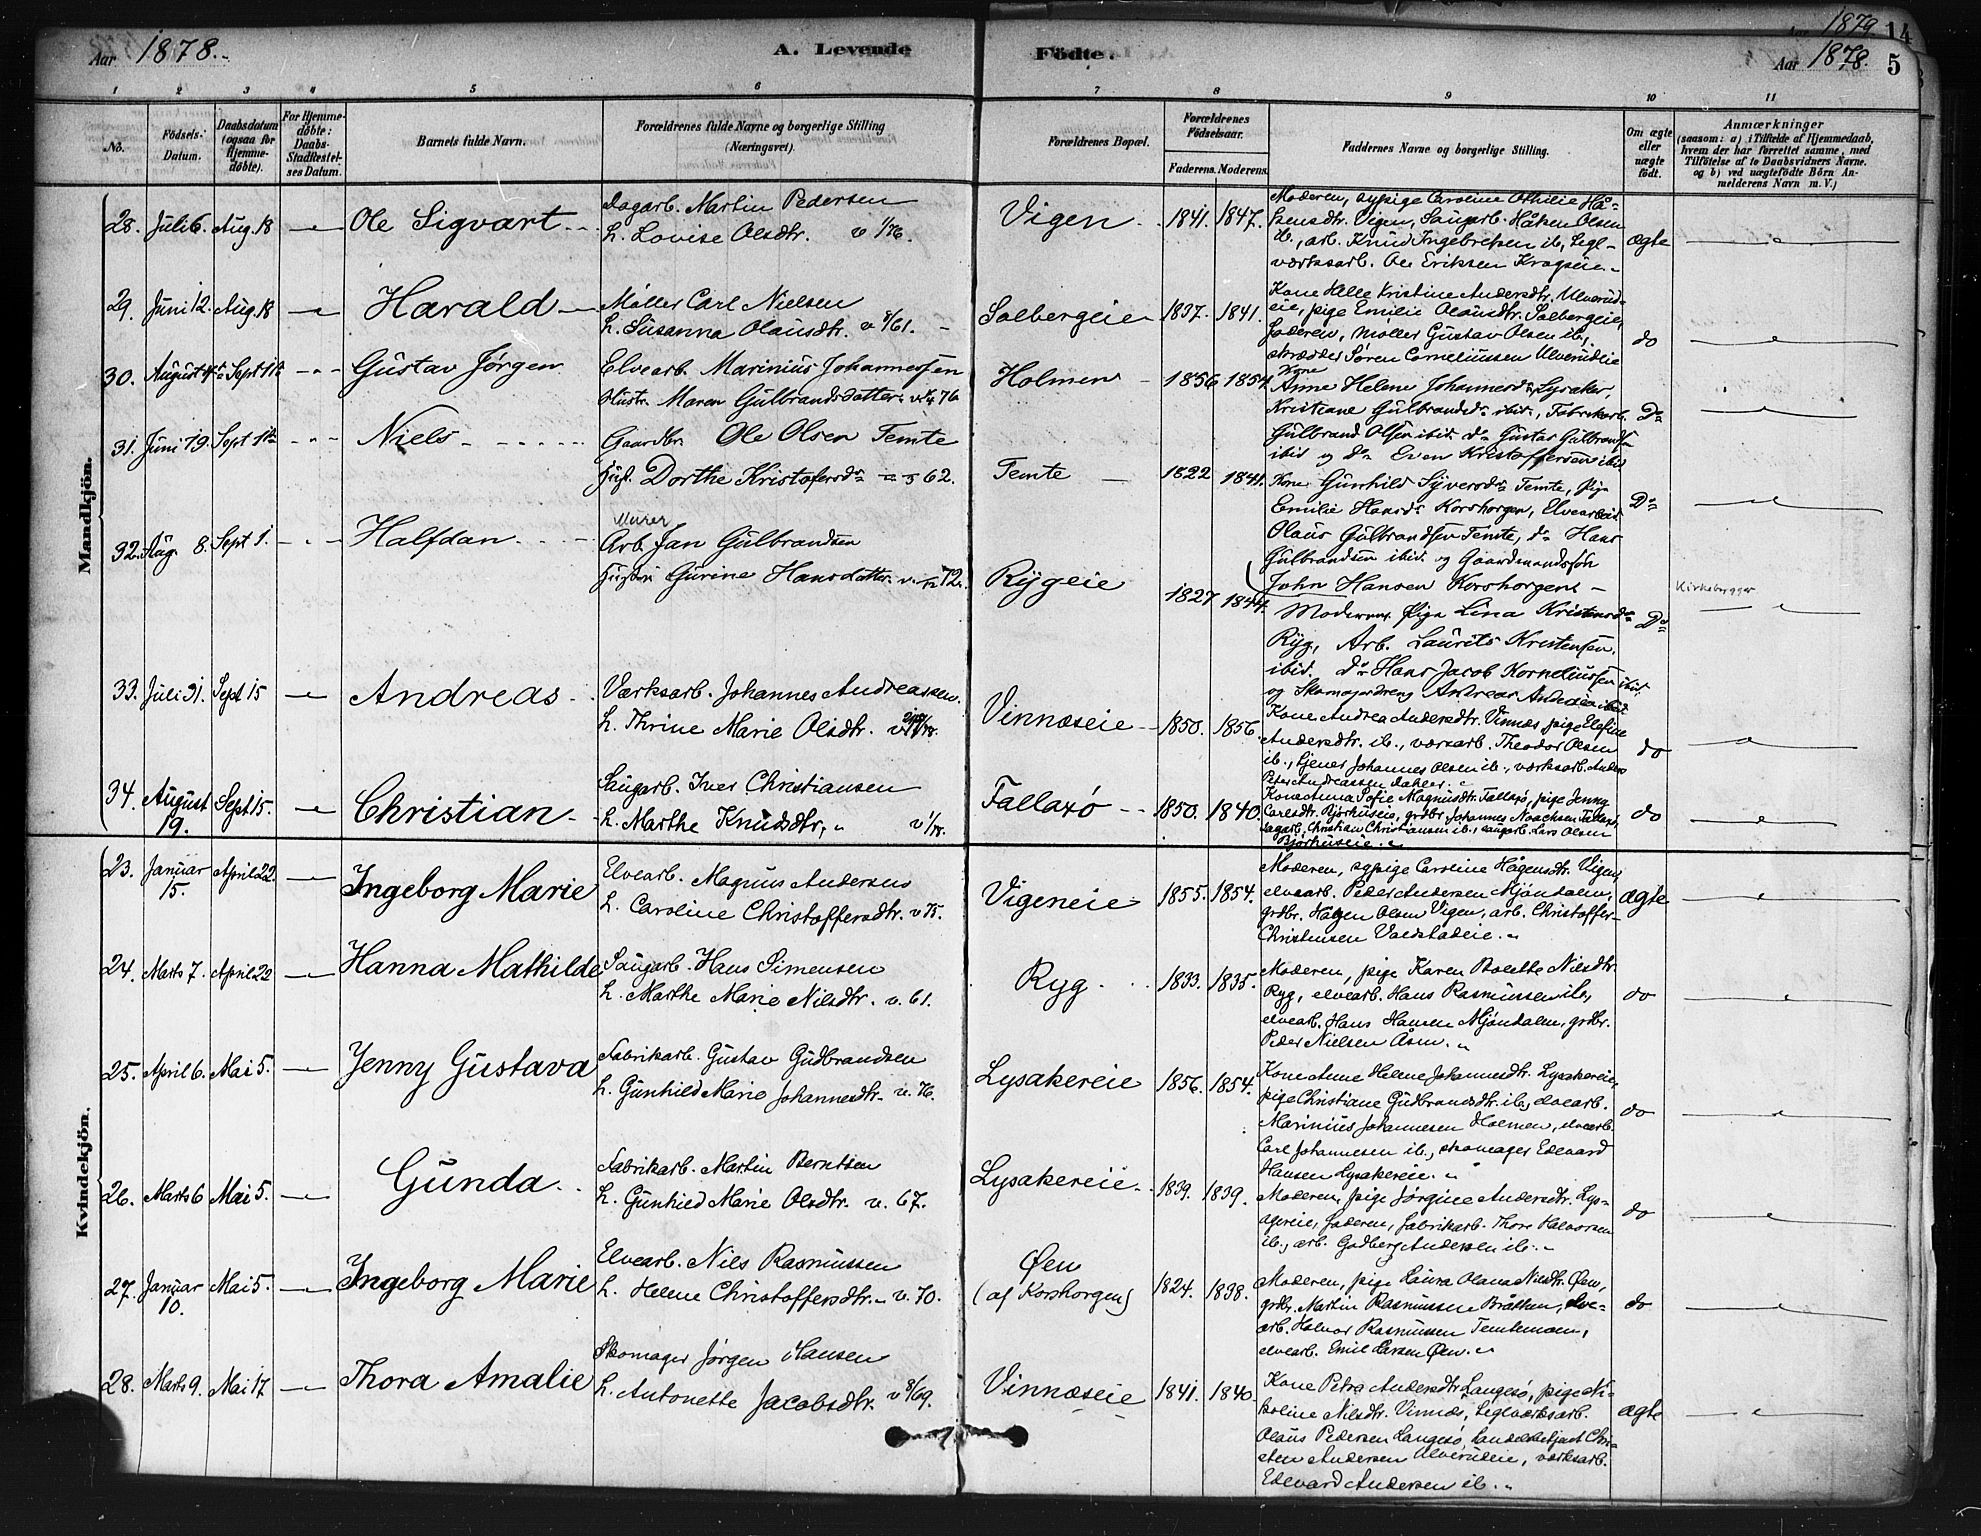 1879 14
Aar 1878. A. Levende Fødte. Aar 1878. 5
1 2 3 4 5 6 7 8 9 10 11
No. Födsels-Datum. Daabsdatum (ogsaa for Hjemmedöbte). For Hjemmedöbte: Daabs-Stadfæstelses Datum. Barnets fulde Navn. Forældrenes fulde Navne og borgerlige Stilling (Næringsvei). Forældrenes Bopæl. Forældrenes Födselsaar. Faderens. Moderens. Faddernes Navne og borgerlige Stilling. Om ægte eller uægte födt. Anmærkninger (saasom: a) i Tilfælde af Hjemmedaab, hvem der har forrettet samme, med Tilföielse af to Daabsvidners Navne. og b) ved uægtefödte Börn Anmelderens Navn m. V.)
Mandkjön.
28. Juli 6. Aug. 18 Ole Sigvart Dagarb. Martin Pedersen
h. Lovise Olsdtr. v 1/76. Vigen 1841. 1847. ægte
Moderen, sypige Caroline Othilie Hå-
kensdtr. Vigen, Saugarb. Håken Olsen
ib., arb. Knud Ingebretsen ib., Tegl-
værksarb. Ole Eriksen Krogseie.
29. Juni 12. Aug. 18 Harald Møller Carl Nielsen
h. Susanna Olausdtr. v 8/61. Solbergeie 1837. 1841. do
Kone Helle Kristine Andersdtr. Ulverud-
eie, pige Emilie Olausdtr. Solbergeie,
Faderen, Møller Gustav Olsen ib.,
skrædder Søren Corneliussen Ulverudeie
30. August Sept 1 Gustav Jørgen Elvearb. Marinius Johannessen
Hustr. Maren Gulbrandsdatter 76 Holmen 1856 1854 Do
Kone
Anne Helene Johannesdr Lysaker,
Kristiane Gulbrandsdr ibid., Fabrikarb.
Gulbrand Olsen ibid. do Gustav Gulbrandsen
ibid og do Even Kristoffersen ibid
31. Juni 19. Sept 1 Niels Gaardbr. Ole Olsen Temte
Dorthe Kristofersdr 62. Temte 1822 1841. Do
Kone Gunhild Syversdr Temte, Pige
Emilie Hansdr Korshorgen, Elvearbeid.
Olaus Gulbrandsen Temte, do Hans
Gulbrandsen ibid. og Gaardmandssøn
John Hansen Korshorgen
32. Aug. 8. Sept 1. Halfdan Murer
Arb. Jan Gulbrandsen
Gurine Hansdatter 72. Rygeie 1827 1844. Do Kirkebygger
Moderen, Pige Lina Kristensdr
Ryg, Arb. Laurits Kristensen
ibid. do Hans Jacob Korneliussen ibid.
og Skomagerdreng Andreas
33. Juli 31. Sept 15 Andreas Værksarb. Johannes Andreassen.
h. Thrine Marie Olsdtr. Vinnæseie 1850. 1856. do
Kone Andrea Andersdtr. Vinnæs pige Elefine
Andersdtr. ib., værksarb. Theodor Olsen
ib., tjener Johannes Olsen ib., værksarb. Anders
Peter Andreassen
34. August
19. Sept 15. Christian Saugarb. Iver Christiansen
h. Marthe Knudsdtr. v 1/78. Fallaxø 1850. 1840. do
Kone Anna Sofie Magnusdtr. Fallaxø, pige Jenny
Carlsdtr. Bjørhuseie, grdbr. Johannes Noachsen Fallaxø,
dagarb. Christian Christiansen ib., saugarb. Lars Olsen
Bjørhuseie.
Kvindekjön.
23. Januar
15. April 22. Ingeborg Marie Elvearb. Magnus Andersen
h. Caroline Christoffersdtr. v 75. Vigeneie 1855. 1854. ægte
Moderen, sypige Caroline Hågensdtr. Vigen,
elvearb. Peder Andersen Mjøndalen,
grdbr. Hågen Olsen Vigen, arb. Christoffer
Christensen Valdstadeie.
24. Marts 7. April 22 Hanna Mathilde Saugarb. Hans Simensen
h. Marthe Marie Nilsdtr. v. 61. Ryg. 1833. 1835. do
Moderen, pige Karen Bolette Nilsdtr.
Ryg, elvearb. Hans Rasmussen ib.,
elvearb. Hans Hansen Mjøndalen, grdbr.
Peder Nielsen Åsen.
25. April 6. Mai 5. Jenny Gustava Fabrikarb. Gustav Gudbrandsen
h. Gunhild Marie Johannesdtr. v. 76. Lysakereie 1856. 1854. do
Kone Anne Helene Johannesdtr. Lysakereie,
pige Christiane Gudbrandsdtr. ib., elvearb.
Marinius Johannesen Holmen, elvearb.
Carl Johannesen ib., skomager Edevard
Hansen Lysakereie.
26. Marts 6 Mai 5. Gunda Fabrikarb. Martin Berntsen
h. Gunhild Marie Olsdtr. v. 67. Lysakereie 1839. 1839. do
Moderen, pige Jørgine Andersdtr. Lys-
agereie, Faderen, fabrikarb. Thore Halvorsen
ib., arb. Gudberg Andersen ib.
27. Januar
10. Mai 5. Ingeborg Marie Elvearb. Nils Rasmussen
h. Helene Christoffersdtr. v. 70. Øen
(af Korshorgen) 1824. 1838. do
Moderen, pige Laura Olava Nilsdtr. Øen,
grdbr. Martin Rasmussen Bråthen, elve-
arb. Halvor Rasmussen Temtemoen,
elvearb. Emil Larsen Øen.
28. Marts 9. Mai 17 Thora Amalie Skomager Jørgen Hansen
h. Antonette Jacobsdtr. v 8/69. Vinnæseie 1841. 1840. ægte
Kone Petra Andersdtr. Langesø, pige Ni-
koline Nilsdtr. Vinnæs, Teglværksarb.
Olaus Pedersen Langesø, handelsbetjent Chri-
sten Andersen Ulverudeie, værksarb.
Edevard Andersen ib.